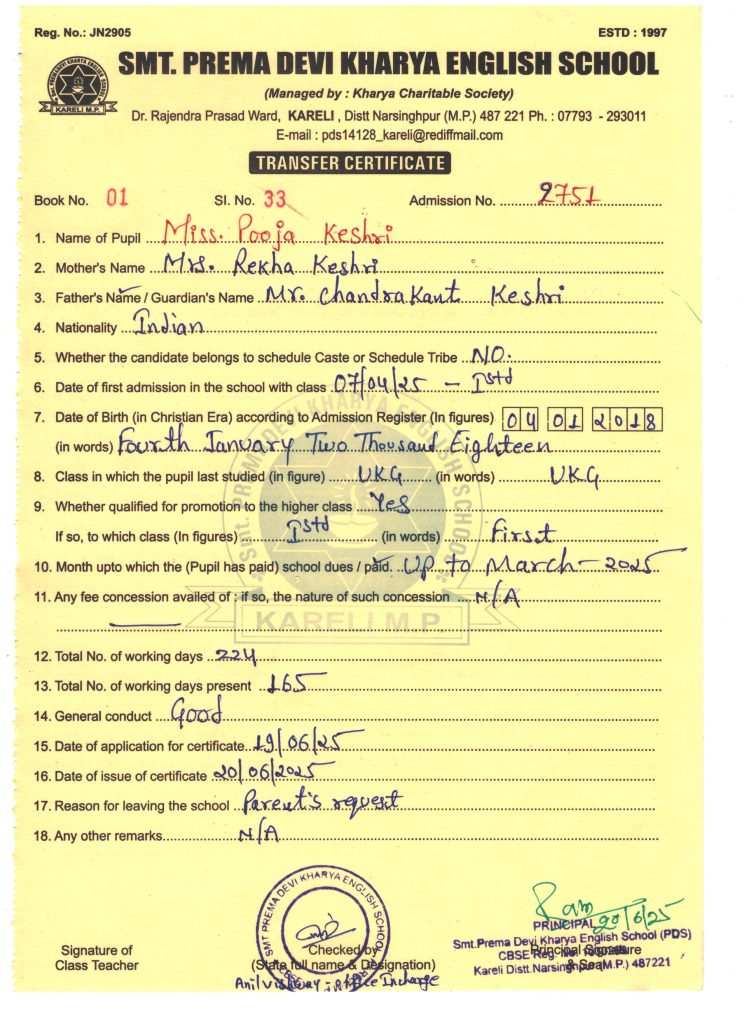 Reg. No.: JN2905
ESTD : 1997
SMT. PREMA DEVI KHARYA ENGLISH SCHOOL
(Managed by : Kharya Charitable Society)
Dr. Rajendra Prasad Ward, KARELI , Distt Narsinghpur (M.P.) 487 221 Ph. : 07793 - 293011
E-mail : pds14128_kareli@rediffmail.com
KARELI M.P.
TRANSFER CERTIFICATE
Book No. 01 Sl. No. 33 Admission No. 2751
1. Name of Pupil Miss. Pooja Keshri
2. Mother's Name Mrs. Rekha Keshri
3. Father's Name / Guardian's Name Mr. Chandrakant Keshri
4. Nationality Indian
5. Whether the candidate belongs to schedule Caste or Schedule Tribe NO.
6. Date of first admission in the school with class 07/04/25 - Istd
7. Date of Birth (in Christian Era) according to Admission Register (In figures) 04 01 2018
(in words) Fourth January Two Thousand Eighteen
8. Class in which the pupil last studied (in figure) UKG (in words) UKG
9. Whether qualified for promotion to the higher class Yes
If so, to which class (In figures) Istd (in words) first
10. Month upto which the (Pupil has paid) school dues / paid. Up to March-2025
11. Any fee concession availed of : if so, the nature of such concession N/A
12. Total No. of working days 224
13. Total No. of working days present 165
14. General conduct Good
15. Date of application for certificate 19/06/25
16. Date of issue of certificate 20/06/2025
17. Reason for leaving the school Parent's request
18. Any other remarks N/A
Smt. PREMA DEVI KHARYA ENGLISH SCHOOL
KARELI M.P.
SMT PREMA DEVI KHARYA ENGLISH SCHOOL
20/6/25
PRINCIPAL
Smt.Prema Devi Kharya English School (PDS)
CBSE Reg. No.
Kareli Distt.Narsinghpur (M.P.) 487221
Signature of
Class Teacher
Checked by
(State full name & Designation)
Principal Signature
& Seal
Office Incharge